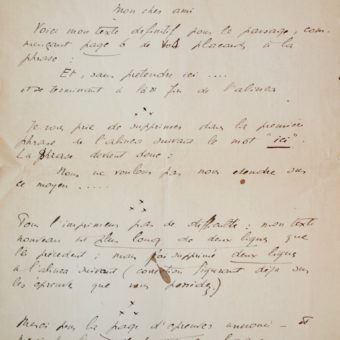 Mon cher ami
Voici mon texte définitif pour le passage, com-
mençant page 6 de vos placards à la
phrase :
Et, sans prétendre ici ....
et se terminant à la fin de l'alinéa
x x x
Je vous prie de supprimer dans la première
phrase de l'alinéa suivant le mot "ici".
La phrase devient donc :
Nous ne voulons pas nous étendre sur
ce moyen .....
x x x
Pour l'imprimeur pas de difficulté : mon texte
nouveau ne plus long de deux lignes que
le précédent : mais j'ai supprimé deux lignes
à l'alinéa suivant (correction figurant déjà sur
les épreuves que vous possédez)
x x x
Merci pour la page d'épreuves